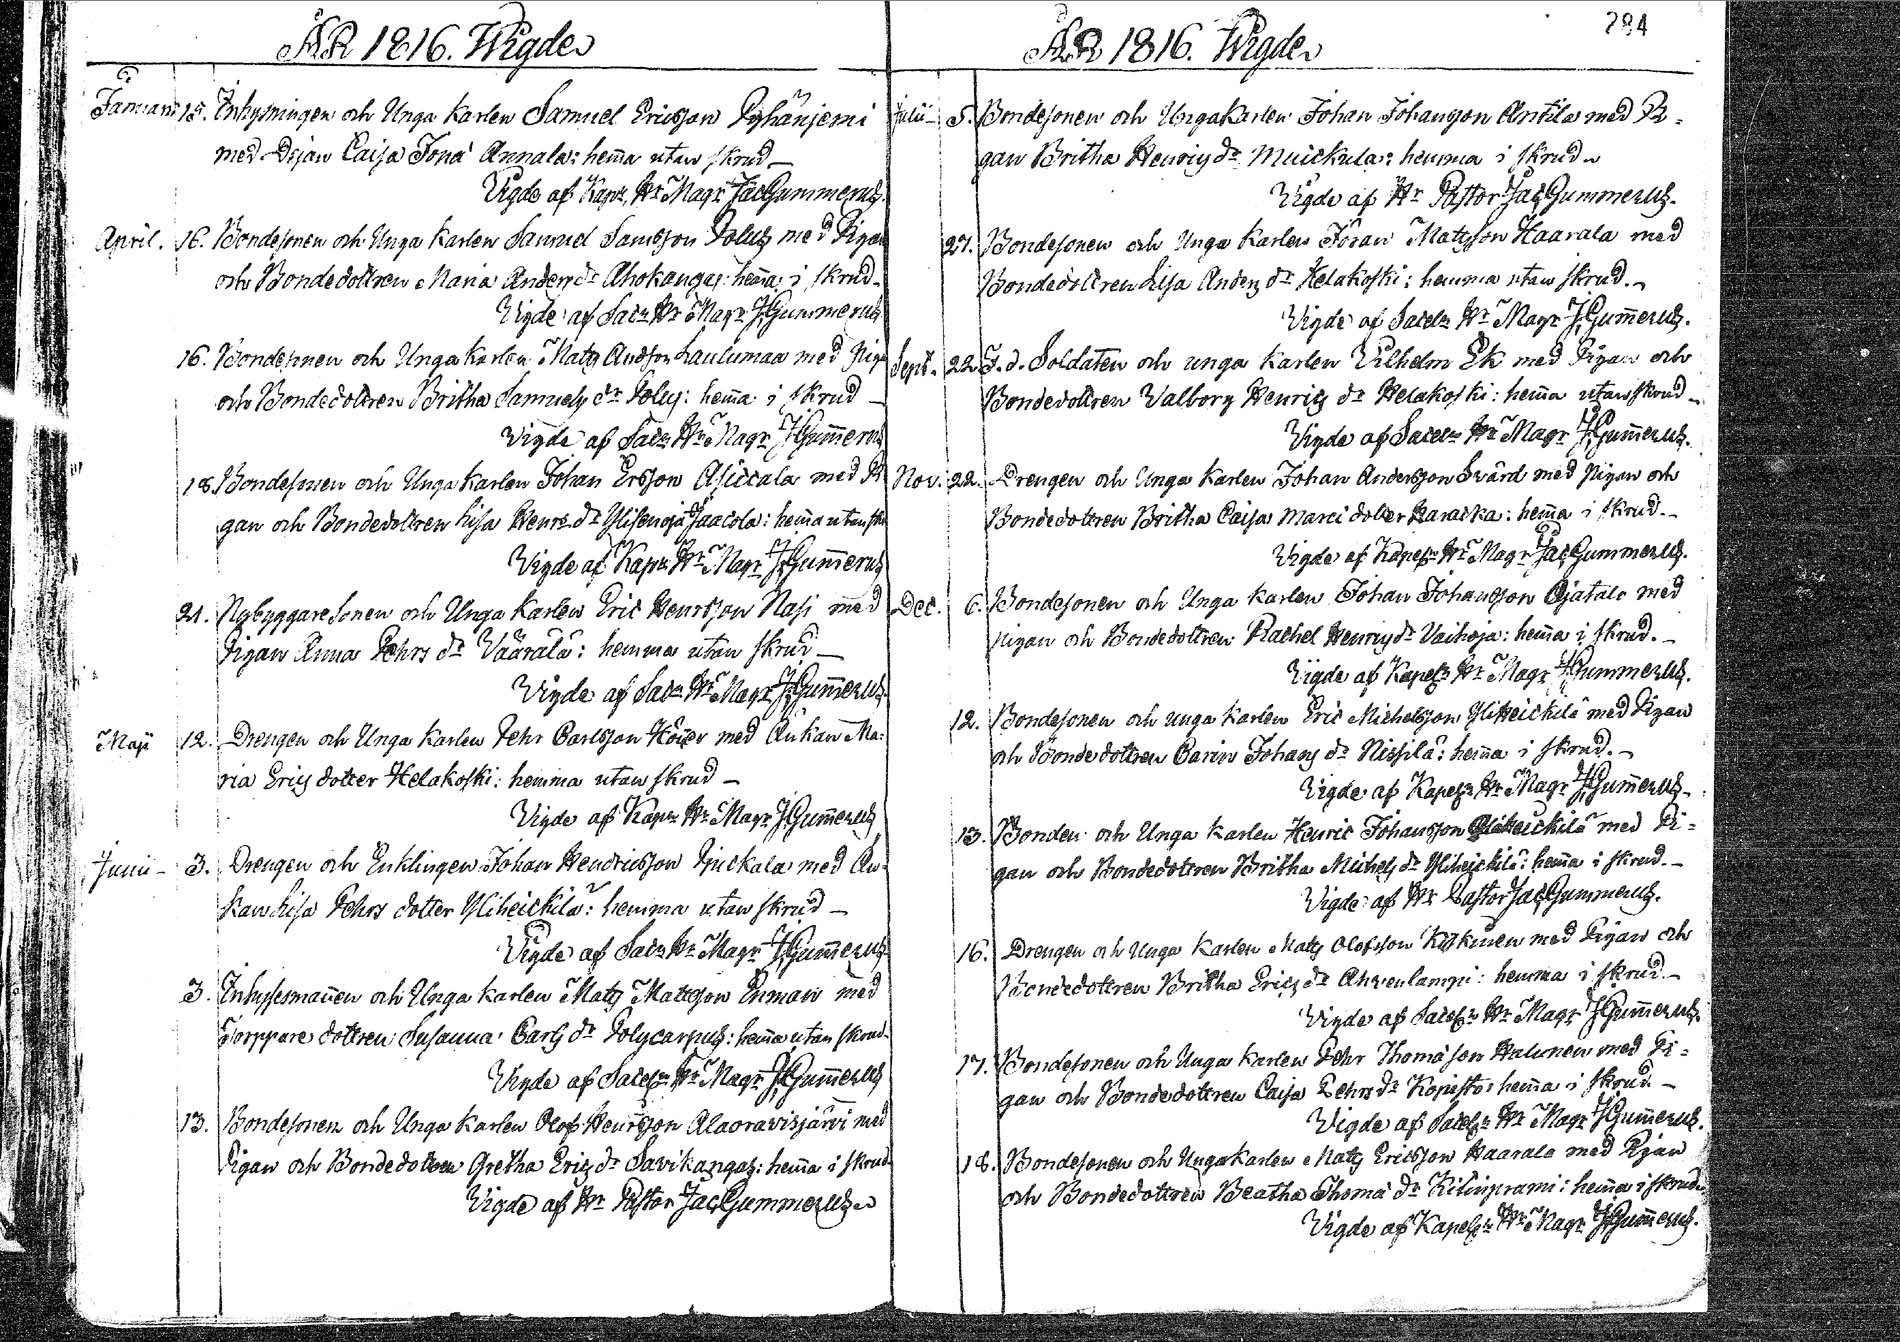 ÅR 1816. Wigde
Januarii 15. Inhysningen och Unga Karlen Samuel Ericsson Pyhänjemi
med Pigan Caisa Jona Annala: hem̄a utan skrud
Vigde af Kapn Hr Magr JacGummerus.
April. 16. Bondesonen och Unga Karlen Samuel Samsson Polus med Pigan
och Bondedottren Maria Anders dr Ahokangas: hem̄a i skrud.
Vigde af Sacn Hr Magr JGummerus
16. Bondesonen och Unga Karlen Matts Andsson Laulumaa med Pigan
och Bondedottren Britha Samuels dr Polus: hem̄a i skrud
Vigde af Sacn Hr Magr JGum̄erus
18. Bondesonen och Unga Karlen Johan Ersson Asiccala med Pi
gan och Bondedottren Lisa Henrs dr Ylisenoja Jaacola: hem̄a utan skr
Vigde af Kapn Hr Magr JGum̄erus
21. Nybyggaresonen och Unga Karlen Eric Henrsson Nasi med
Pigan Anna Pehrs dr Väärälä: hemma utan skrud
Vigde af Sacn Hr Magr JGum̄erus.
Maji 12. Drengen och Unga Karlen Pehr Carlsson Höizer med Änkan Ma:
ria Erics dotter Helakoski: hemma utan skrud
Vigde af Kapn Hr Magr JGum̄erus
Junii 3. Drengen och Enklingen Johan Hendricsson Pjuckala med Än-
kan Lisa Pehrs dotter Yliheickilä: hemma utan skrud
Vigde af Sacn Hr Magr JGum̄erus
3. Inhysesman̄en och Unga Karlen Matts Mattsson Enman med
Torppare dottren Susanna Carls dr Polycarpus: hem̄a utan skrud.
Vigde af Sacen Hr Magr JGum̄erus
13. Bondesonen och Unga Karlen Olof Henrsson Alaoravisjärvi med
Pigan och Bondedottren Gretha Erics dr Savikangas: hem̄a i skrud
Vigde af Hr Pastor JacGummerus
284
ÅR 1816. Wigde
Julii 5. Bondesonen och Unga Karlen Johan Johansson Anttila med Pi-
gan Britha Henrics dr Muickula: hemma i skrud
Vigde af Hr Pastor JacGummerus.
27. Bondesonen och Unga Karlen Jöran Mattsson Haarala med
Bondedottren Lisa Anders dr Helakoski: hemma utan skrud.
Vigde af Sacen Hr Magr JGum̄erus.
Sept. 22. F.d. Soldaten och unga Karlen Vilhelm Ek med Pigan och
Bondedottren Valborg Henrics dr Helakoski: hem̄a utan skrud
Vigde af Sacen Hr Magr JGum̄erus.
Nov. 22. Drengen och Unga Karlen Johan Andersson Svärd med Pigan och
Bondedottren Britha Caisa Marci dotter Haracka: hem̄a i skrud.
Vigde af Kapen Hr Magr JacGummerus.
Dec. 6. Bondesonen och Unga Karlen Johan Johansson Ojatalo med
Pigan och Bondedottren Rachel Henrics dr Vaihoja: hem̄a i skrud.
Vigde af Kapen Hr Magr JGummerus.
12. Bondesonen och unga Karlen Eric Michelsson Yliheickilä med Pigan
och Bondedottren Carin Johans dr Nissilä: hem̄a i skrud.
Vigde af Kapen Hr Magr JGum̄erus.
13. Bonden och Unga Karlen Henric Johansson med Pi-
gan och Bondedottren Britha Michels dr Yliheickilä: hem̄a i skrud.
Vigde af Hr Pastor JacGummerus.
16. Drengen och Unga Karlen Matts Olofsson Kykinen med Pigan och
Bondedottren Britha Erics dr Ahvenlampi: hemma i skrud
Vigde af Sacen Hr Magr JGummerus.
17. Bondesonen och Unga Karlen Pehr Thomason Halunen med Pi-
gan och Bondedottren Caisa Pehrs dr Kopisto: hem̄a i skrud.
Vigde af Sacen Hr Magr JGum̄erus.
18. Bondesonen och Unga Karlen Matts Ericsson Haarala med Pigan
och Bondedottren Beatha Thoma dr Kilinprami: hem̄a i skrud
Vigde af Kapen Hr Magr JGum̄erus.